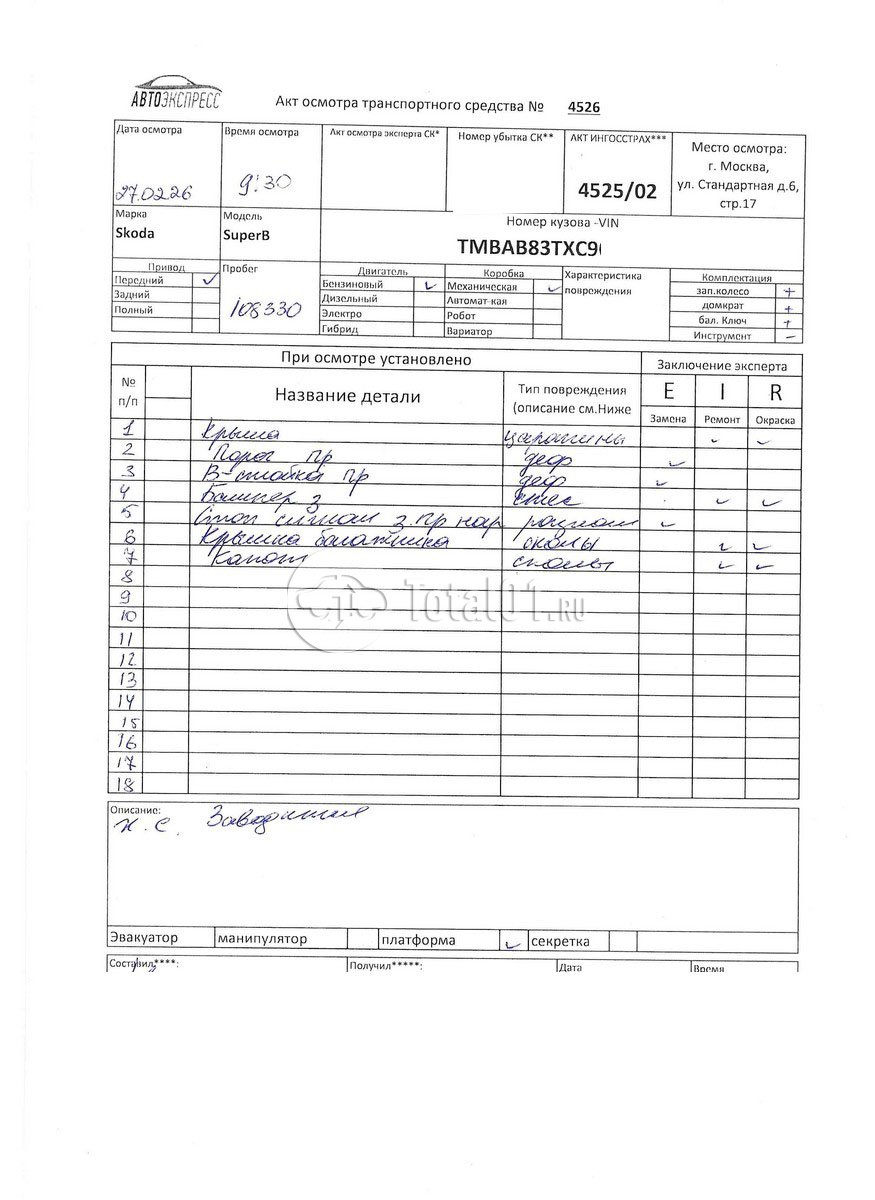 АВТОЭКСПРЕСС
Акт осмотра транспортного средства № 4526
Дата осмотра
27.02.26
Время осмотра
9:30
Акт осмотра эксперта СК*
Номер убытка СК**
АКТ ИНГОССТРАХ***
4525/02
Место осмотра:
г. Москва,
ул. Стандартная д.6,
стр.17
Марка
Skoda
Модель
SuperB
Номер кузова -VIN
TMBAB83TXC9
Привод
Передний ✓
Задний
Полный
Пробег
108330
Двигатель
Бензиновый ✓
Дизельный
Электро
Гибрид
Коробка
Механическая ✓
Автомат-кая
Робот
Вариатор
Характеристика
повреждения
Комплектация
зап.колесо +
домкрат +
бал. Ключ +
Инструмент –
При осмотре установлено
Заключение эксперта
№
п/п
Название детали
Тип повреждения
(описание см.Ниже
E I R
Замена Ремонт Окраска
1 Крыша царапины ✓ ✓
2 Порог пр деф ✓
3 В-стойка пр деф ✓
4 Бампер з ✓ ✓
5 Стоп сигнал з.пр нар ✓
6 Крышка багажника сколы ✓ ✓
7 Капот сколы ✓ ✓
8
9
10
11
12
13
14
15
16
17
18
Total01.RU
Описание:
Эвакуатор манипулятор платформа ✓ секретка
Составил****: Получил*****: Дата Время